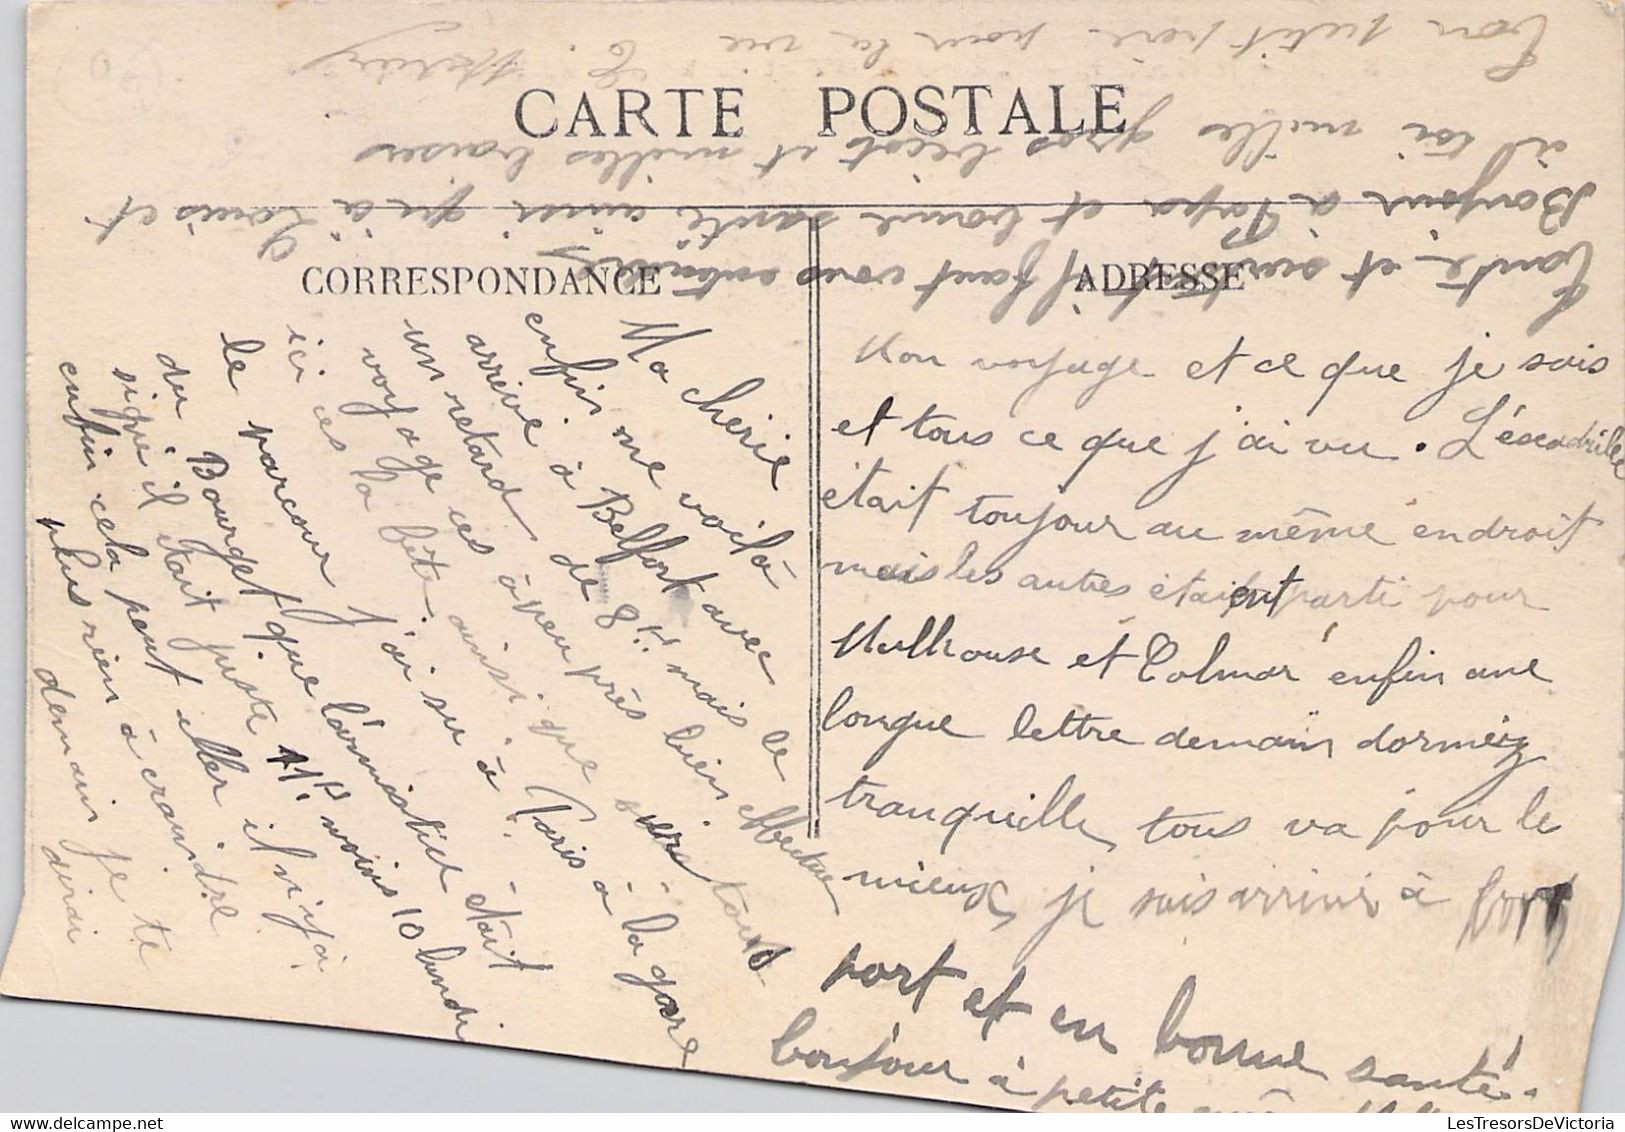 CARTE POSTALE
CORRESPONDANCE
ADRESSE
Ma chérie
enfin me voilà
arrivé à Belfort avec
un retard de 8H mais le
voyage ces à peu près bien effectué
ici ces la fête ainsi que tout
le parcour j'ai su à Paris à la gare
du Bourget que l'armistice était
signé il était juste 11H moins 10 lundi
enfin cela peut aller il n'y à
plus rien à craindre
demain je te
dirai
Mon voyage et ce que je sais
et tous ce que j'ai vu. L'éscadrille
était toujour au même endroit
mais les autres étaient parti pour
Mulhouse et Colmar enfin une
longue lettre demain dormez
tranquille, tous va pour le
mieux, je suis arrivé à bon
port et en bonne santé.
bonjour à petite
tante et surtout il faut vous
Bonjour à Papa et bonne santé ainsi qu'à Louis et
à toi mille gros bécots et milles baisers
Ton petit pour la vie
LesTresorsDeVictoria